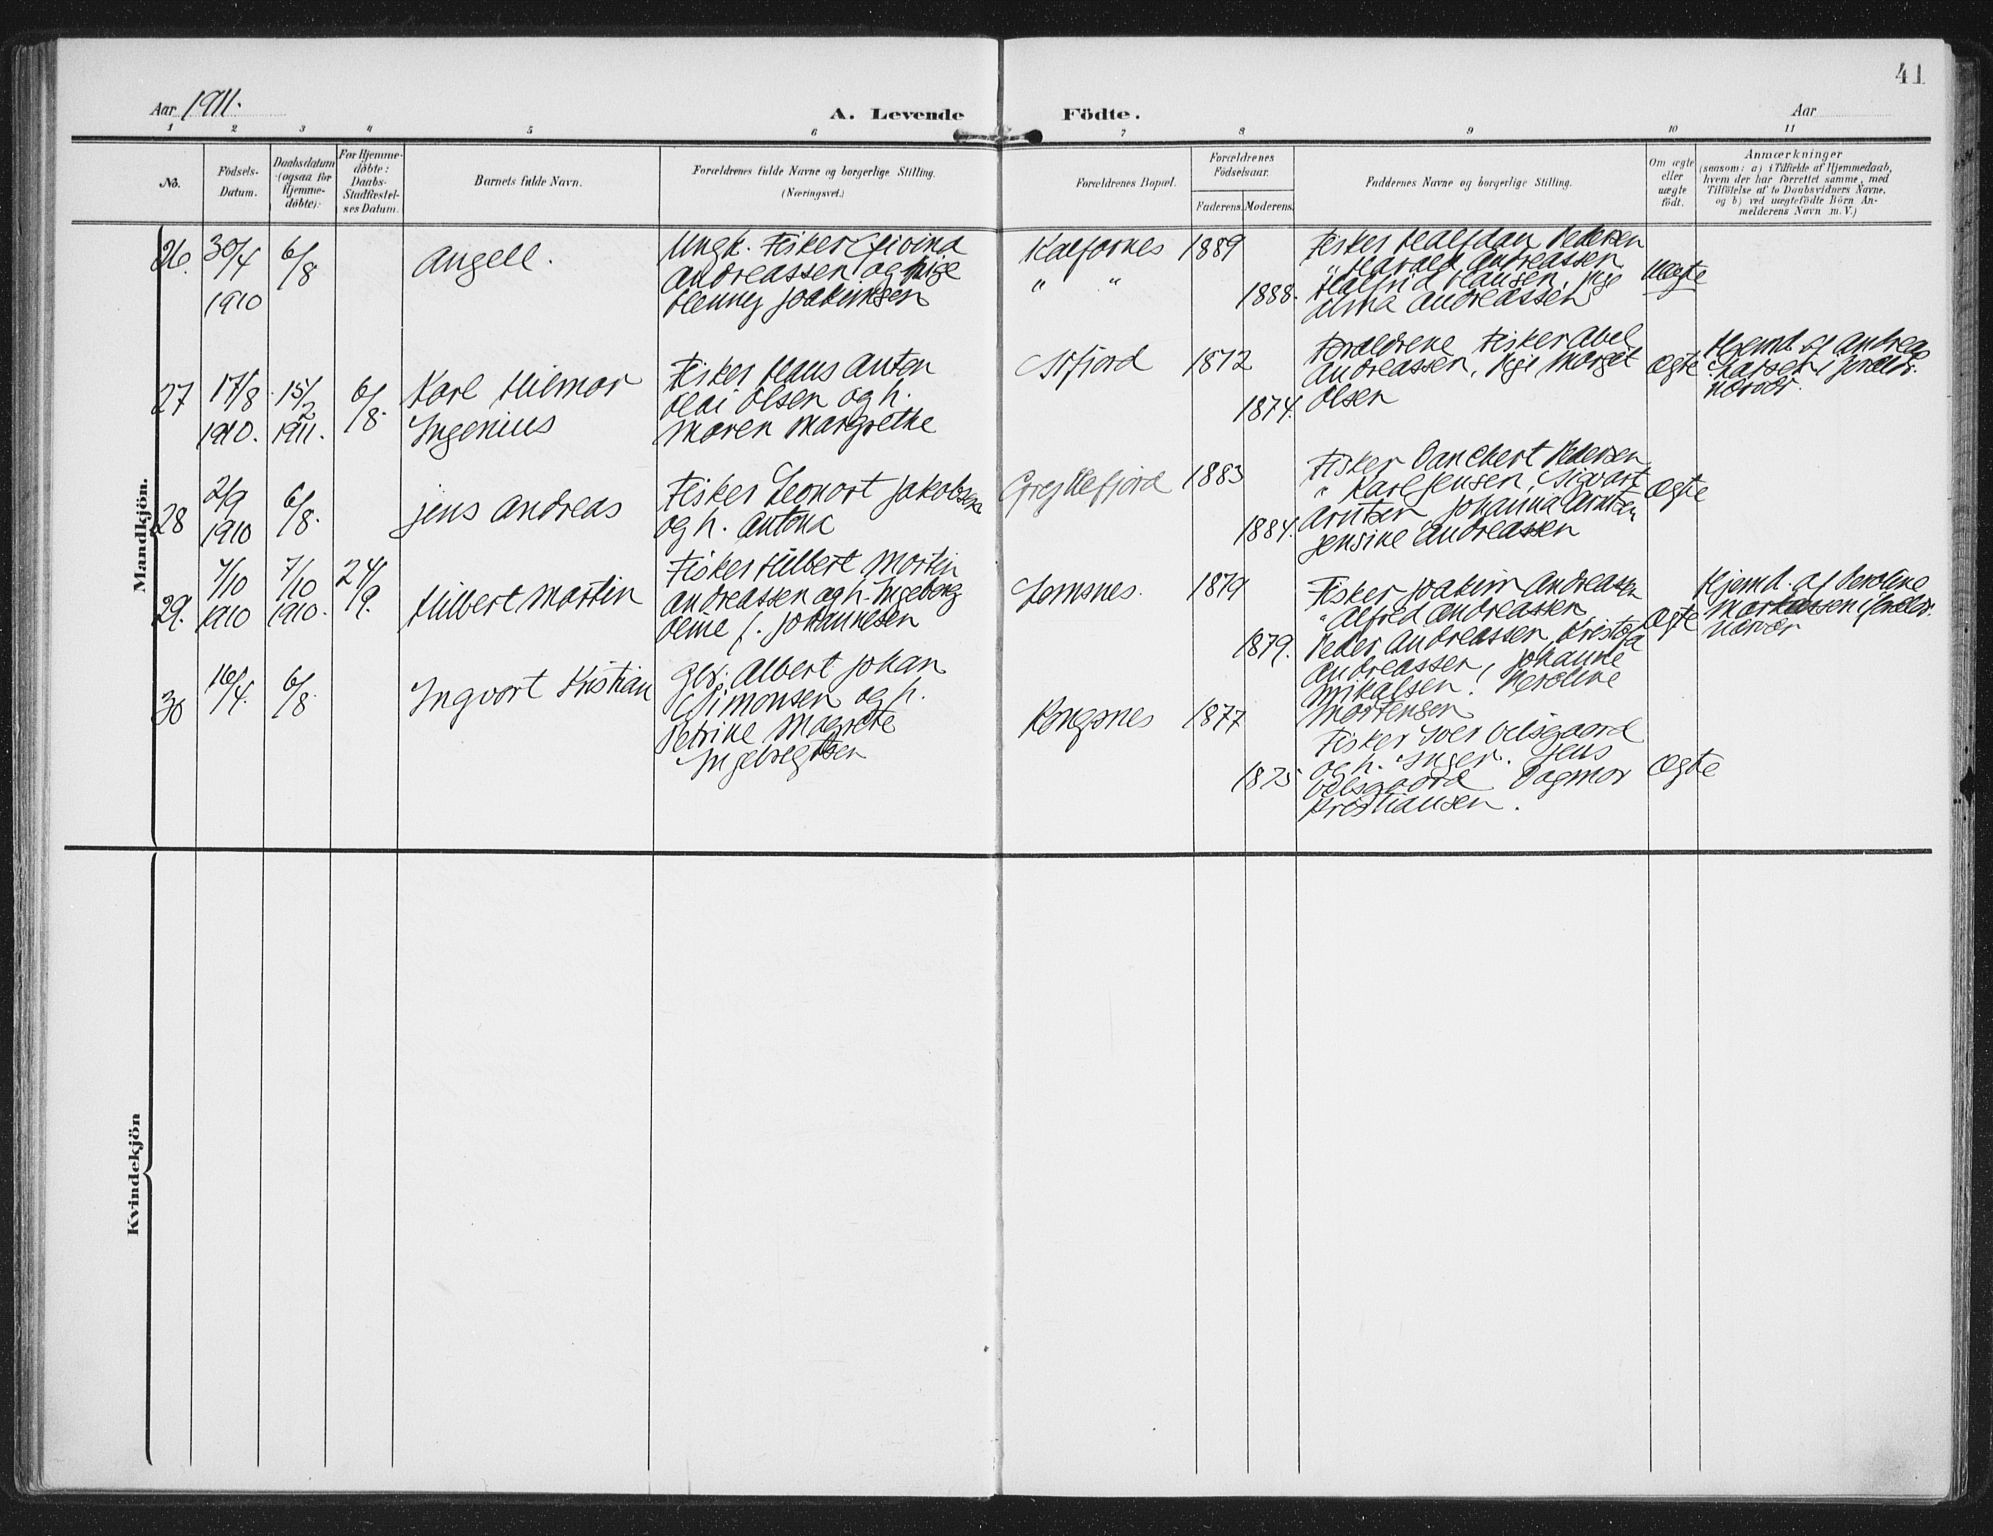 41
Aar 1911.
A. Levende Födte.
Aar
1 2 3 4 5 6 7 8 9 10 11
No.
Födsels-
Datum.
Daabsdatum
(ogsaa for
Hjemme-
döbte).
For Hjemme-
döbte:
Daabs-
Stadfæstel-
ses Datum.
Barnets fulde Navn.
Forældrenes fulde Navne og borgerlige Stilling.
(Næringsvei.)
Forældrenes Bopæl.
Forældrenes
Födselsaar.
Faderens. Moderens.
Faddernes Navne og borgerlige Stilling.
Om ægte
eller
uægte
födt.
Anmærkninger
(saasom: a) i Tilfælde af Hjemmedaab,
hvem der har forrettet samme, med
Tilföielse af to Daabsvidners Navne,
og b) ved uægtefödte Börn An-
melderens Navn m. V.)
Mandkjön.
26.
30/4
1910
6/8
Angell.
Ungk. Fisker
Andreassen og Pige
Henny Joakimsen
Kalfarnes
" "
1889
1888.
Fisker Halfdan Pedersen
" Harald Andreassen
Halfrid Hansen, Pige
Alma Andreassen
Uægte
27
17/8
1910.
15/2
1911.
6/8.
Karl Hilmar
Ingenius
Fisker Hans Anton
Olai Olsen og h.
Maren Margrethe
Isfjord
1872
1874.
Forældrene, Fisker Abel
Andreassen, Pige Marget
Olsen
Ægte
Hjemd. af Andrea
Larsen i Forældr.
Nærvær.
28
2/9
1910
6/8.
Jens Andreas
Fisker Leonart Jakobsen
og h. Antona
Gryllefjord
1883
1884.
Fisker Danchert Pedersen
" Karl Jensen, Sigvart
Arntsen, Johanna Arntsen
Jensine Andreassen
Ægte
29.
1/10
1910
7/10
1910.
24/9.
Hilbert Martin
Fisker Hilbert Martin
Andreassen og h. Ingeborg
Oline f. Johannesen
Lemsnes.
1879
1879.
Fisker Joakim Andreassen
" Alfred Andreassen
Peder Andreassen, Kristofa
Andreassen, Johanne
Mikalsen, Peroline
Mortensen
Ægte
Hjemd. af Peroline
Mortensen i Forældr.
Nærvær
30
16/4.
6/8.
Ingvart Kristian
Gbr. Albert Johan
Simonsen og h.
Petrine Magrete
Ingebregtsen
Kongsnes
1877
1875
Fisker Iver Oldsgaard
og h. Inger. Jens
Oldsgaard Dagmar
Kristiansen.
Ægte
Kvindekjön